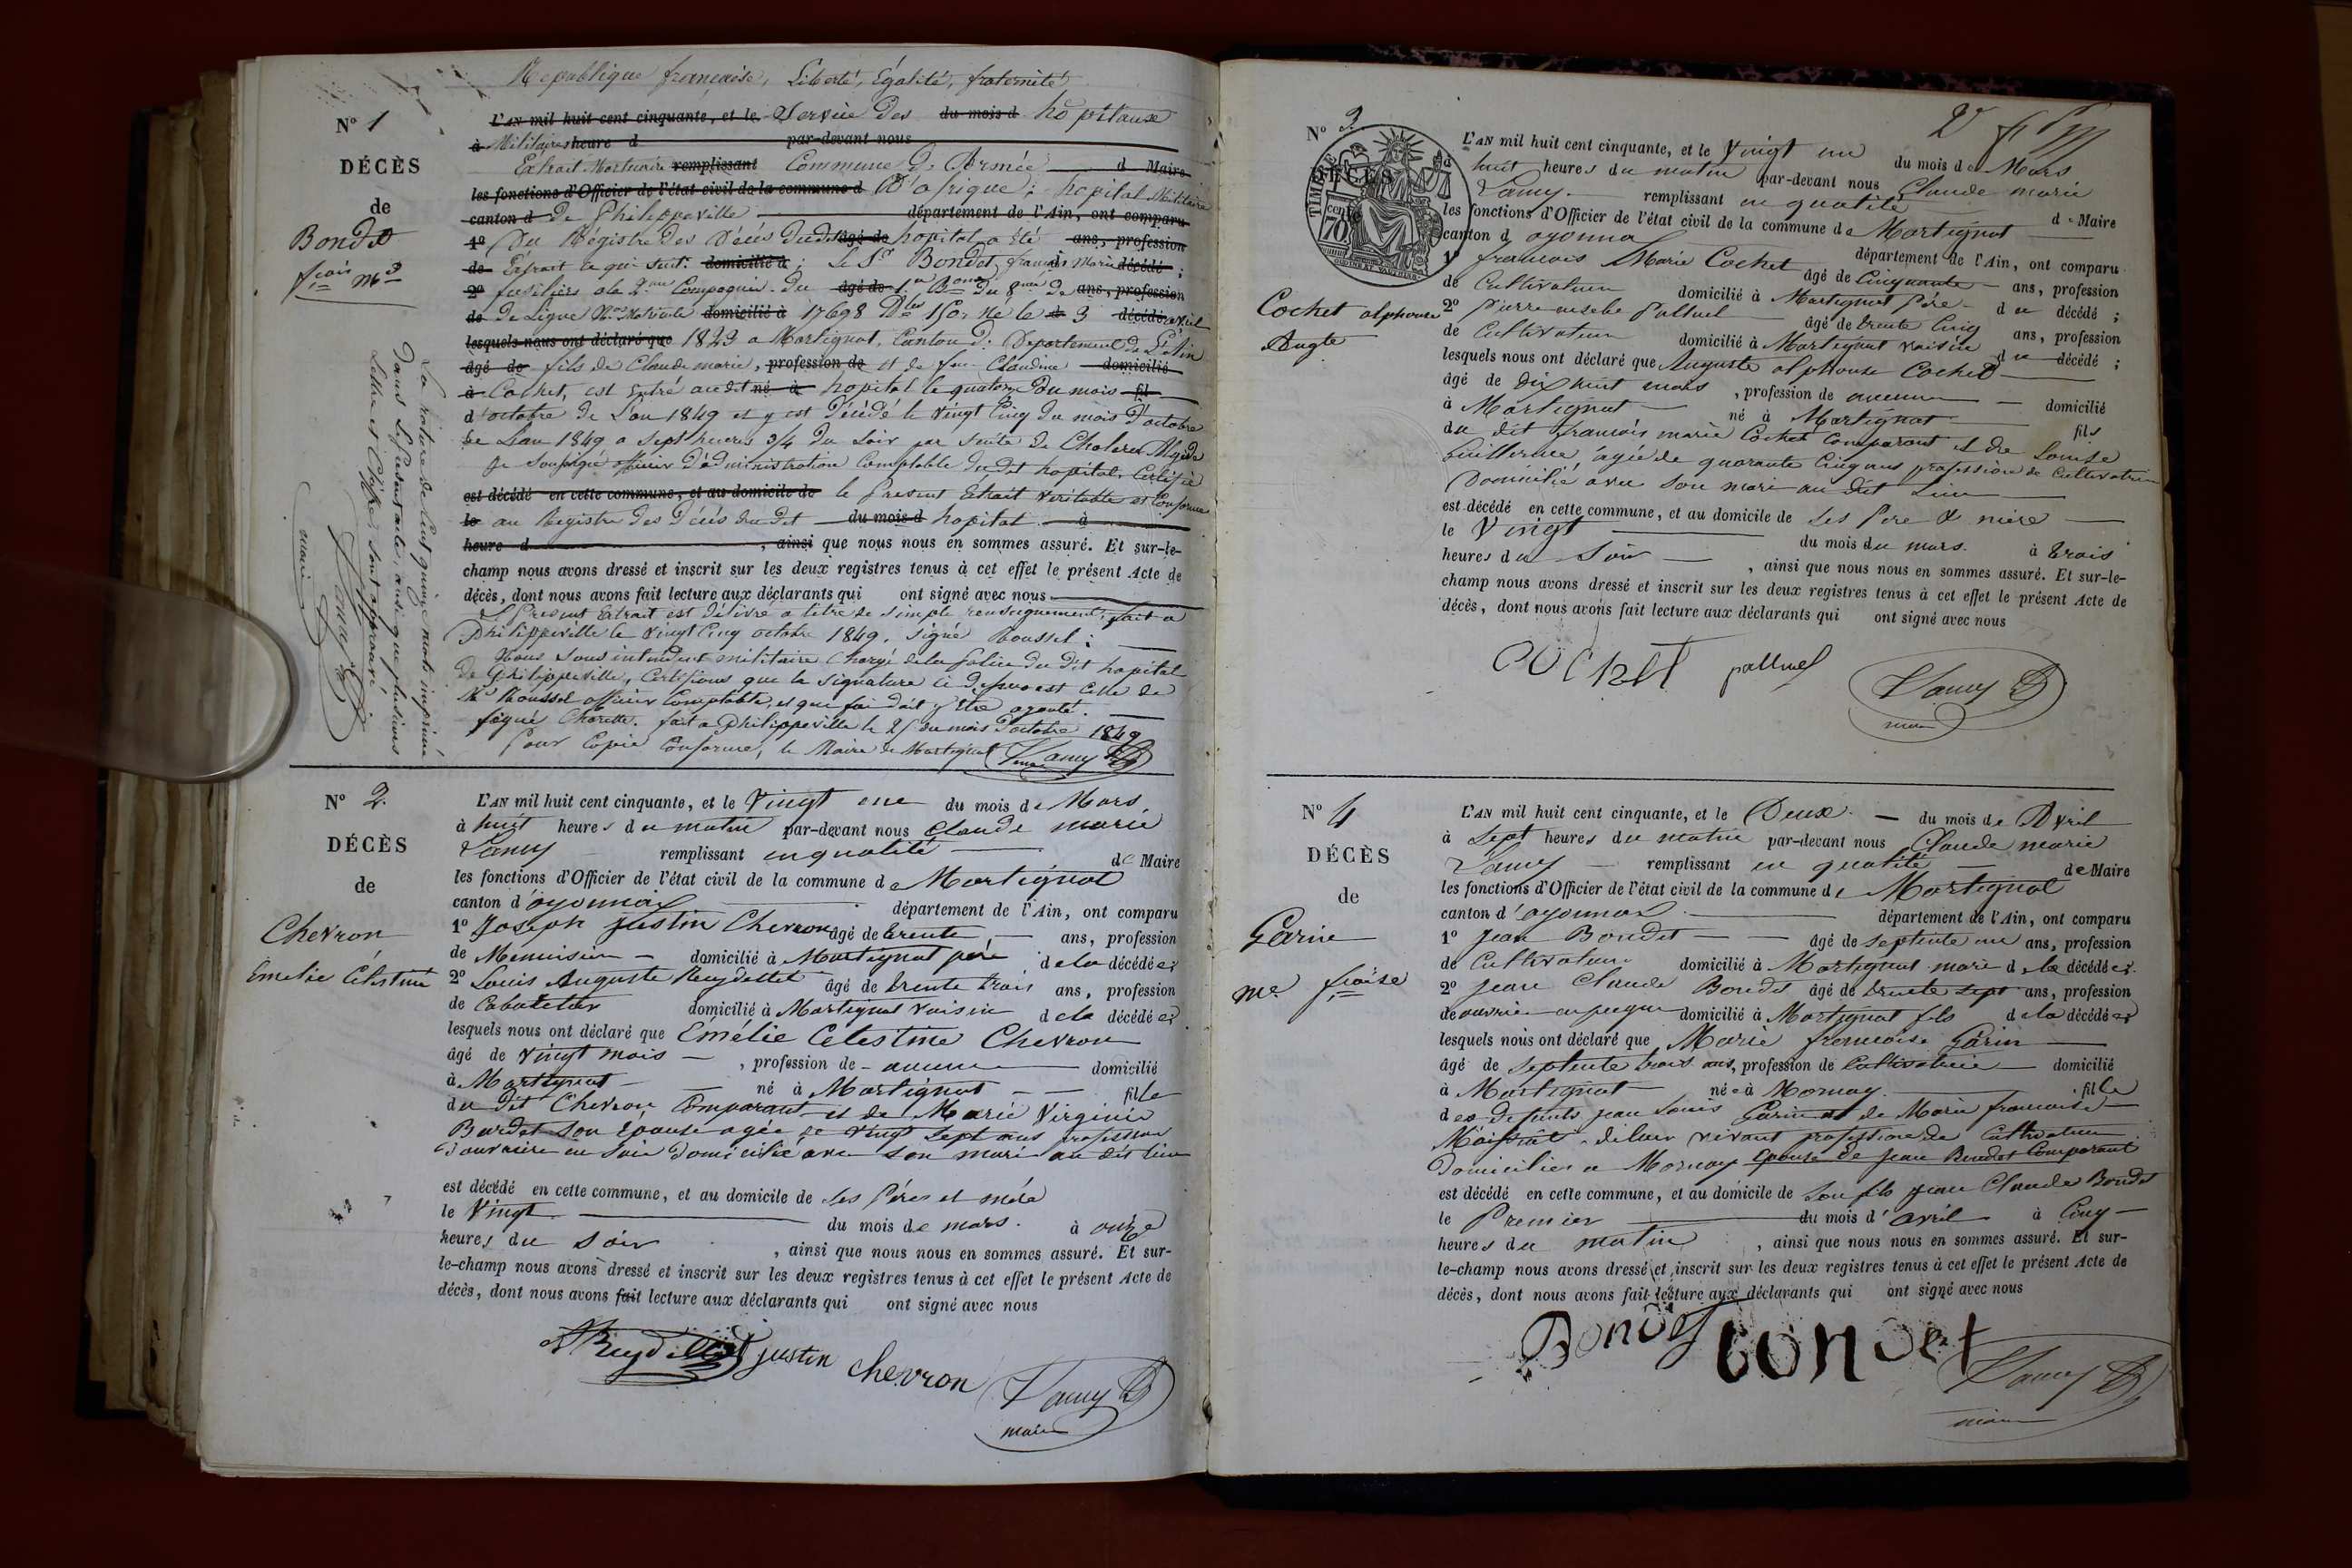 Republique française, Liberté, Egalité, fraternité
N° 1
DÉCÈS
de
Bondet
fçois Mie
L'AN mil huit cent cinquante, et le Service des du mois d hôpitaux
à Militaires heure d par-devant nous
Extrait Mortuaire remplissant Commune de Armée d Maire
les fonctions d'Officier de l'état civil de la commune d D'afrique; hopital Militaire
canton d De Philippeville département de l'Ain, ont comparu
1° Du Régistre des Décés dudit âgé de hopital a été ans, profession
de Extrait ce qui suit: domicilié à Le Sr Bondet françois Marie décédé ;
2° fusiliers à la 2me Compagnie du âgé de 1er Bon du 8me de ans, profession
de De Ligne No Matricule domicilié à 17698 né le 3 décédé
lesquels nous ont déclaré que 1823 a Martignat, Canton d: Departement de L'Ain
âgé de fils de Claude marie, profession de et de feue Claudine domicilié
à Cochet, est entré audit né à hopital le quatorze du mois fil
d'octobre de L'an 1849 et y est Décédé le vingt Cinq du mois D'octobre
de L'an 1849 a sept heures 3/4 du soir par suite de Cholera
Je soussigné officier D'administration Comptable dudit hopital, Certifie
est décédé en cette commune, et au domicile de le Present Extrait veritable et Conforme
le au Registre des Décés du dit du mois d hopital à
heure d , ainsi que nous nous en sommes assuré. Et sur-le-
champ nous avons dressé et inscrit sur les deux registres tenus à cet effet le présent Acte de
décès, dont nous avons fait lecture aux déclarants qui ont signé avec nous
Le Present Extrait est délivré a titre de simple renseignement, fait a
Philippeville le vingt Cinq octobre 1849. signé Roussel:
Nous sous intendant militaire Chargé de la police du dit hopital
De Philippeville, Certifions que la signature ci dessus est Celle de
Mr Roussel officier Comptable, et que foi doit y être ajouté.
signé Charette. fait a Philippeville le 25 du mois D'octobre 1849
Pour Copie Conforme, le Maire de Martignat Lamy
La rature de Cinquante quinze mots imprimé
Dans Le present acte, ainsi que plusieurs
Lettres et Chiffres sont approuvé
Lamy
maire
N° 2.
DÉCÈS
de
Chevron
Émelie Célestine
L'AN mil huit cent cinquante, et le Vingt une du mois de Mars,
à huit heures du matin par-devant nous Claude marie
Lamy remplissant en qualité de Maire
les fonctions d'Officier de l'état civil de la commune de Martignat
canton d'oyonnax département de l'Ain, ont comparu
1° Joseph Justin Chevron âgé de trente ans, profession
de Menuisier domicilié à Martignat père de la décédée;
2° Louis Auguste Reydellet âgé de trente trois ans, profession
de Cabaretier domicilié à Martignat voisin de la décédée;
lesquels nous ont déclaré que Émélie Célestine Chevron
âgé de vingt mois , profession de aucune domicilié
à Martignat né à Martignat fille
du dit Chevron Comparant et de Marie Virginie
Bardet son épouse agée de vingt sept ans profession
d'ouvrière en soie domiciliée avec son mari au dit lieu
est décédé en cette commune, et au domicile de ses Père et mère
le Vingt du mois de mars. à onze
heures du soir , ainsi que nous nous en sommes assuré. Et sur-
le-champ nous avons dressé et inscrit sur les deux registres tenus à cet effet le présent Acte de
décès, dont nous avons fait lecture aux déclarants qui ont signé avec nous
A Reydellet justin chevron Lamy
maire
N° 3.
DÉCÈS
TIMBRE
70
Cochet alphonse
Augte
L'AN mil huit cent cinquante, et le Vingt un du mois de Mars
à huit heures du matin par-devant nous Claude marie
Lamy remplissant en qualité de Maire
les fonctions d'Officier de l'état civil de la commune de Martignat
canton d oyonna département de l'Ain, ont comparu
1° francois Marie Cochet âgé de Cinquante ans, profession
de Cultivateur domicilié à Martignat Père du décédé ;
2° Pierre ausebe Palluel âgé de trente Cinq ans, profession
de Cultivateur domicilié à Martignat voisin du décédé ;
lesquels nous ont déclaré que Auguste alphonse Cochet
âgé de dix huit mois , profession de aucune domicilié
à Martignat né à Martignat fils
du dit francois marie Cochet Comparant et de Louise
Guillerme agée de quarante Cinq ans profession de Cultivatrice
Domicilié avec son mari au dit Lieu
est décédé en cette commune, et au domicile de ses Pere & mère
le Vingt du mois du mars. à trois
heures du soir , ainsi que nous nous en sommes assuré. Et sur-le-
champ nous avons dressé et inscrit sur les deux registres tenus à cet effet le présent Acte de
décès, dont nous avons fait lecture aux déclarants qui ont signé avec nous
cochet palluel Lamy
maire
N° 4
DÉCÈS
de
Garin
Me fcoise
L'AN mil huit cent cinquante, et le Deux du mois de Avril
à Sept heures du matin par-devant nous Claude marie
Lamy remplissant en qualité de Maire
les fonctions d'Officier de l'état civil de la commune de Martignat
canton d'oyonnax département de l'Ain, ont comparu
1° Jean Bondet âgé de septente un ans, profession
de Cultivateur domicilié à Martignat mari de la décédée.
2° Jean Claude Bondet âgé de trente sept ans, profession
de ouvrier en peigne domicilié à Martignat fils de la décédée
lesquels nous ont déclaré que Marie francoise Garin
âgé de septente trois ans, profession de Cultivatrice domicilié
à Martignat née à Mornay fille
des defunts jean Louis Garin et de Marie francoise
Moissiat de leur vivant profession de Cultivateur
Domiciliés a Mornay épouse de jean Bondet Comparant
est décédé en cette commune, et au domicile de son fils jean Claude Bondet
le Premier du mois d'avril à Cinq
heures du matin , ainsi que nous nous en sommes assuré. Et sur-
le-champ nous avons dressé et inscrit sur les deux registres tenus à cet effet le présent Acte de
décès, dont nous avons fait lecture aux déclarants qui ont signé avec nous
Bondet Bondet Lamy
maire